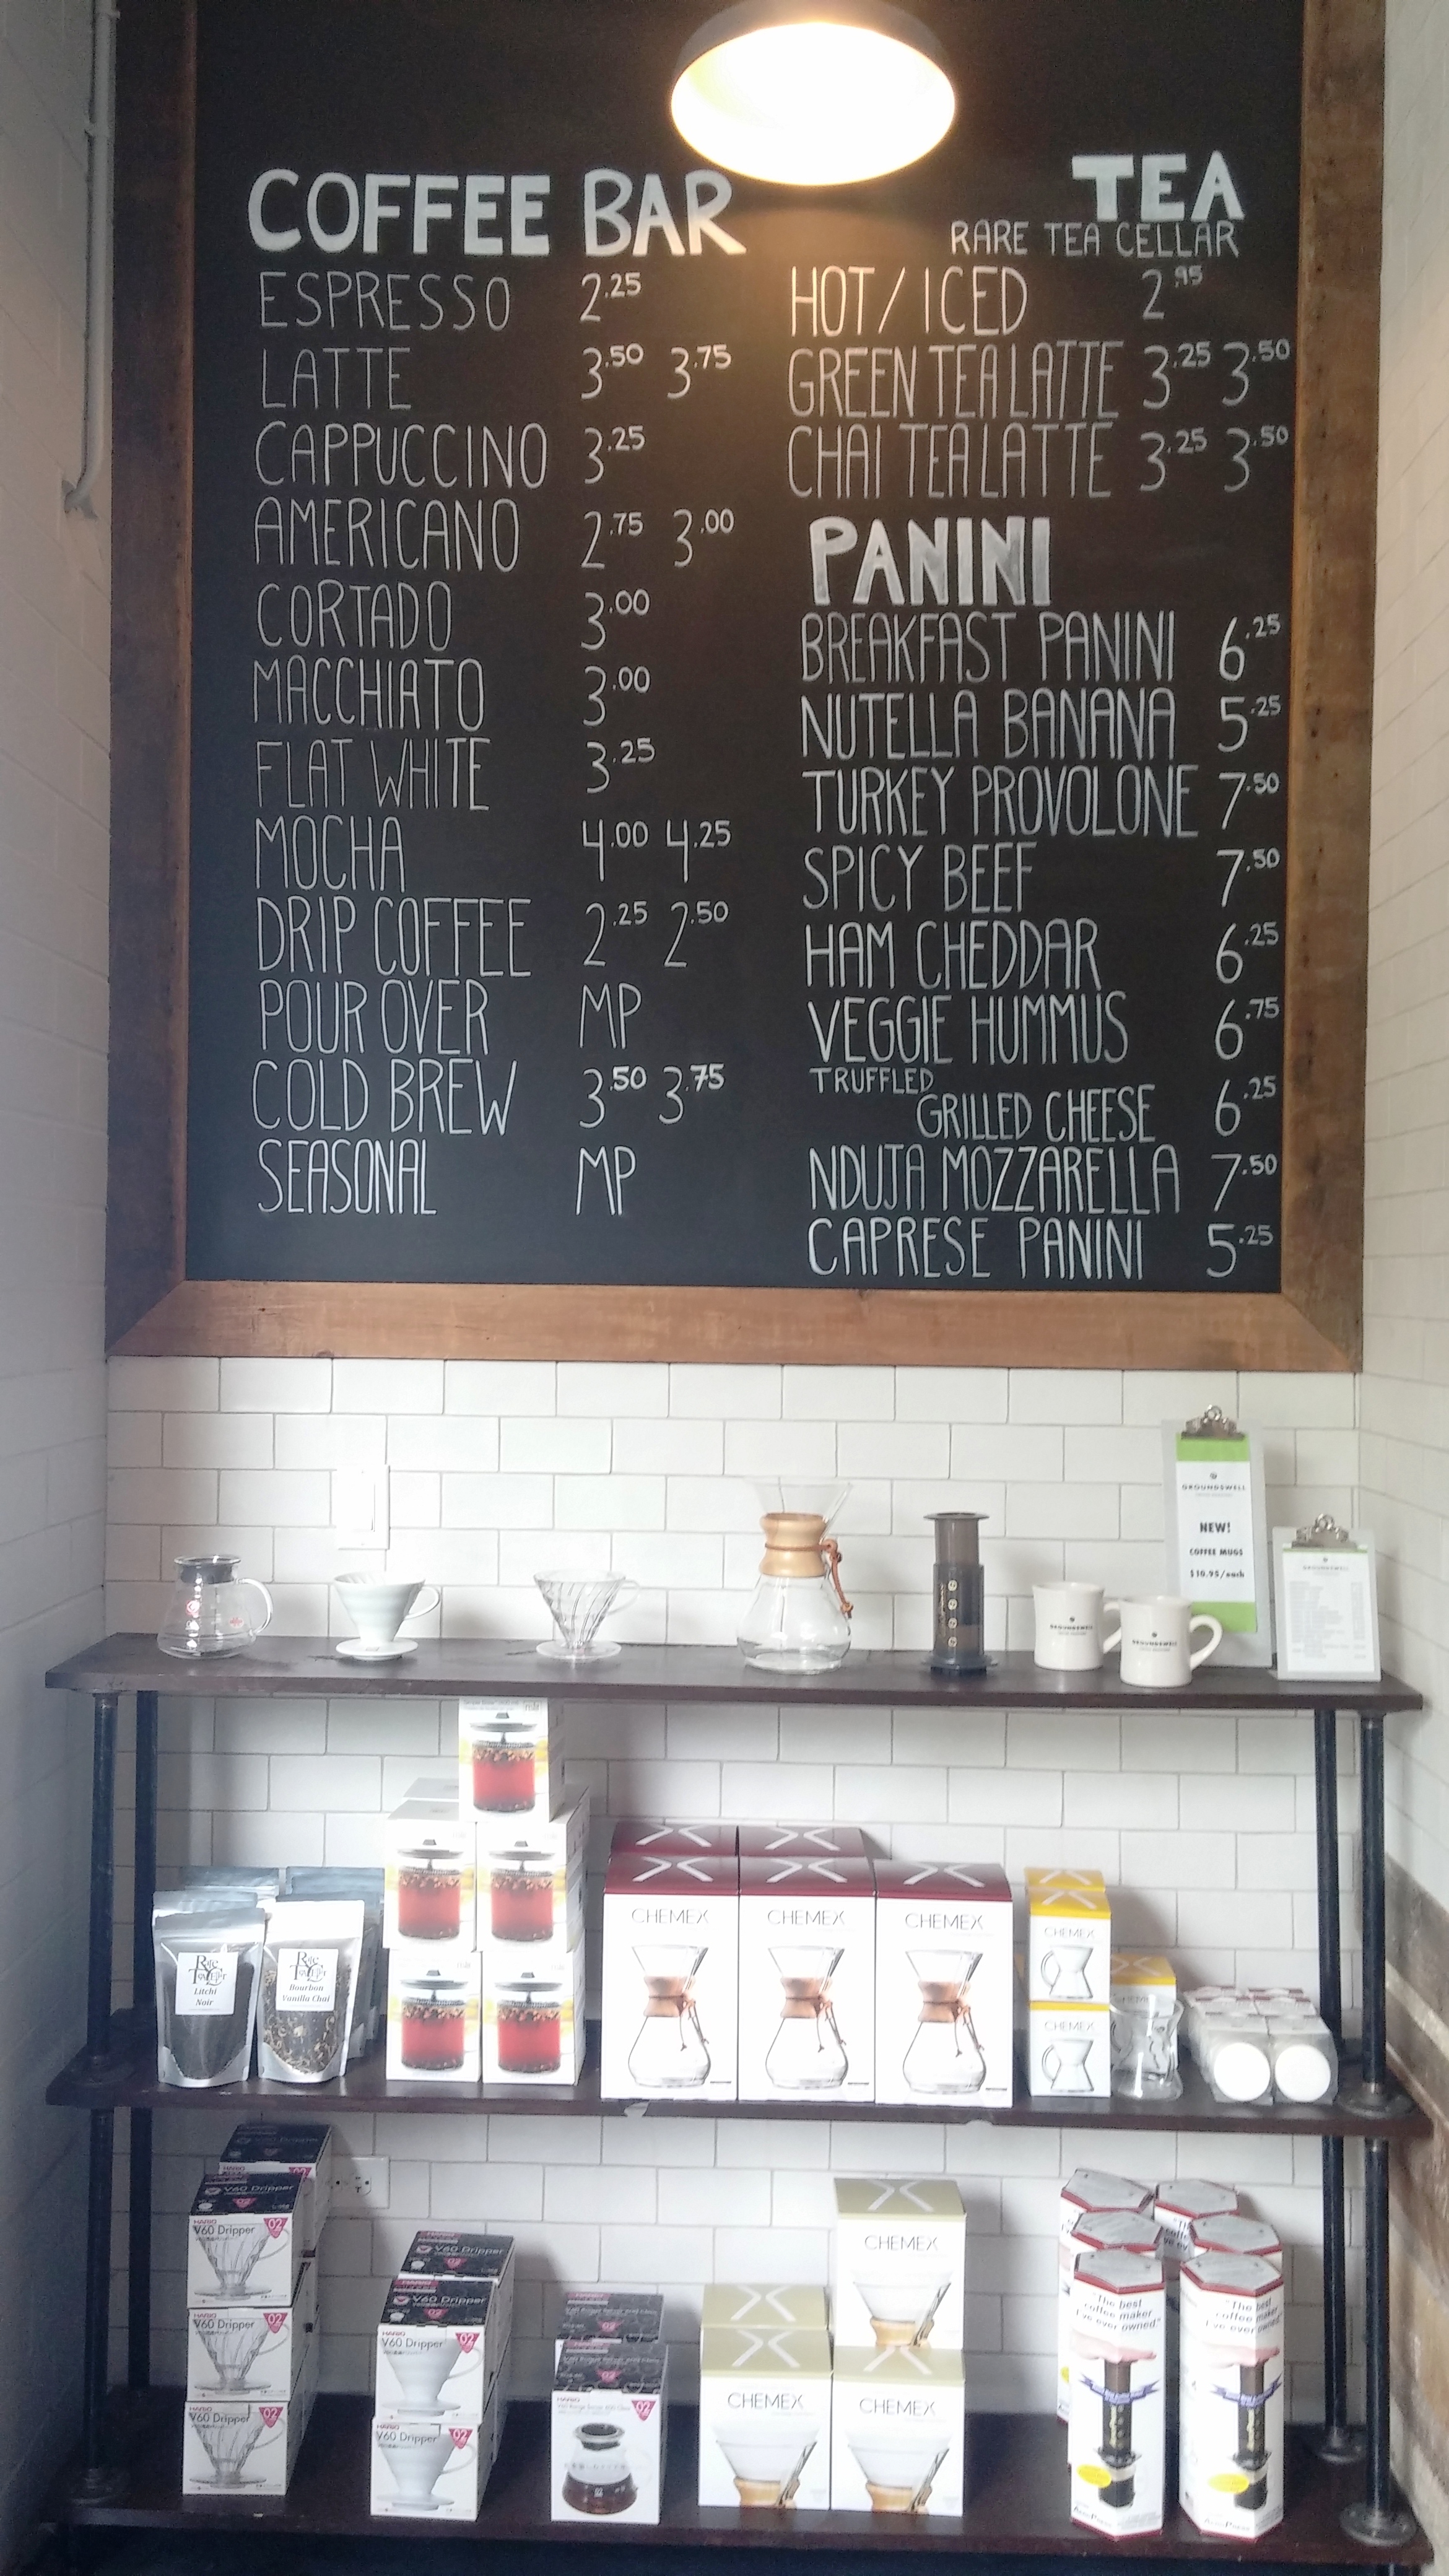 COFFEE BAR
ESPRESSO 2.25
LATTE 3.50 3.75
CAPPUCCINO 3.25
AMERICANO 2.75 3.00
CORTADO 3.00
MACCHIATO 3.00
FLAT WHITE 3.25
MOCHA 4.00 4.25
DRIP COFFEE 2.25 2.50
POUR OVER MP
COLD BREW 3.50 3.75
SEASONAL MP
TEA
RARE TEA CELLAR
HOT/ICED 2.95
GREEN TEA LATTE 3.25 3.50
CHAI TEA LATTE 3.25 3.50
PANINI
BREAKFAST PANINI 6.25
NUTELLA BANANA 5.25
TURKEY PROVOLONE 7.50
SPICY BEEF 7.50
HAM CHEDDAR 6.25
VEGGIE HUMMUS 6.75
TRUFFLED
GRILLED CHEESE 6.25
NDUJA MOZZARELLA 7.50
CAPRESE PANINI 5.25
GROUNDSWELL
NEW!
COFFEE MUGS
$10.95/each
GROUNDSWELL
GROUNDSWELL
GROUNDSWELL
Rare
Tea Cellar
Litchi
Noir
Rare
Tea Cellar
Bourbon
Vanilla Chai
CHEMEX
CHEMEX
CHEMEX
CHEMEX
CHEMEX
V60 Dripper 02
HARIO
V60 Dripper 02
HARIO
V60 Dripper 02
HARIO
V60 Dripper 02
V60 Dripper
02
V60 Dripper
02
HARIO
V60 Dripper 02
HARIO
V60 Dripper 02
HARIO
02
CHEMEX
CHEMEX
CHEMEX
"The best
coffee maker
I've ever owned"
AeroPress
"The best
coffee maker
I've ever owned"
AeroPress